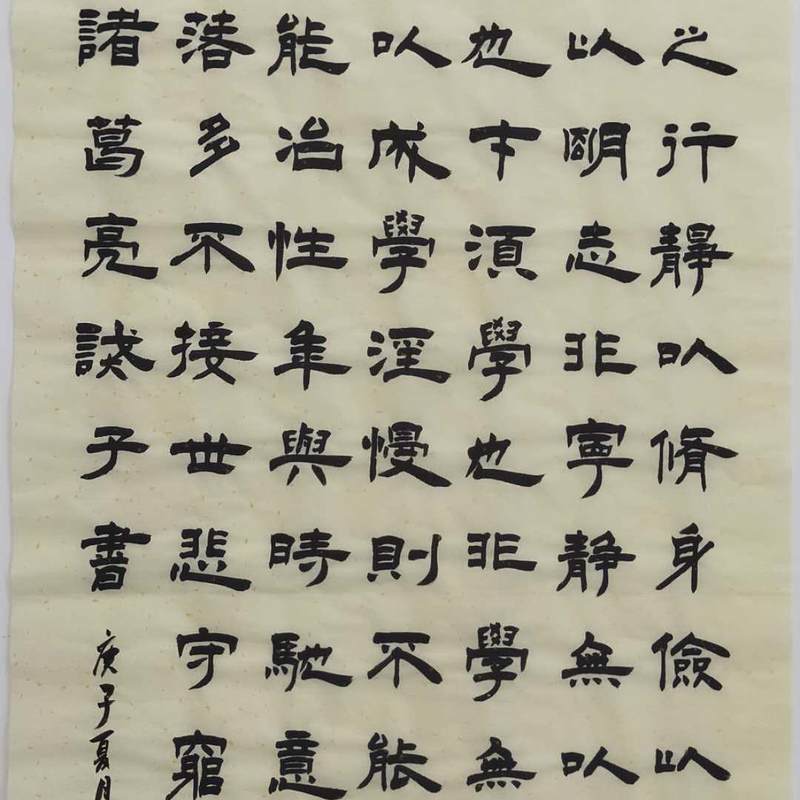 之行靜以脩身儉以
以明志非寧静無以
也才須學也非學無
以成學淫慢則不能
能冶性年與時馳意
落多不接世悲守窮
諸葛亮誡子書
庚子夏月